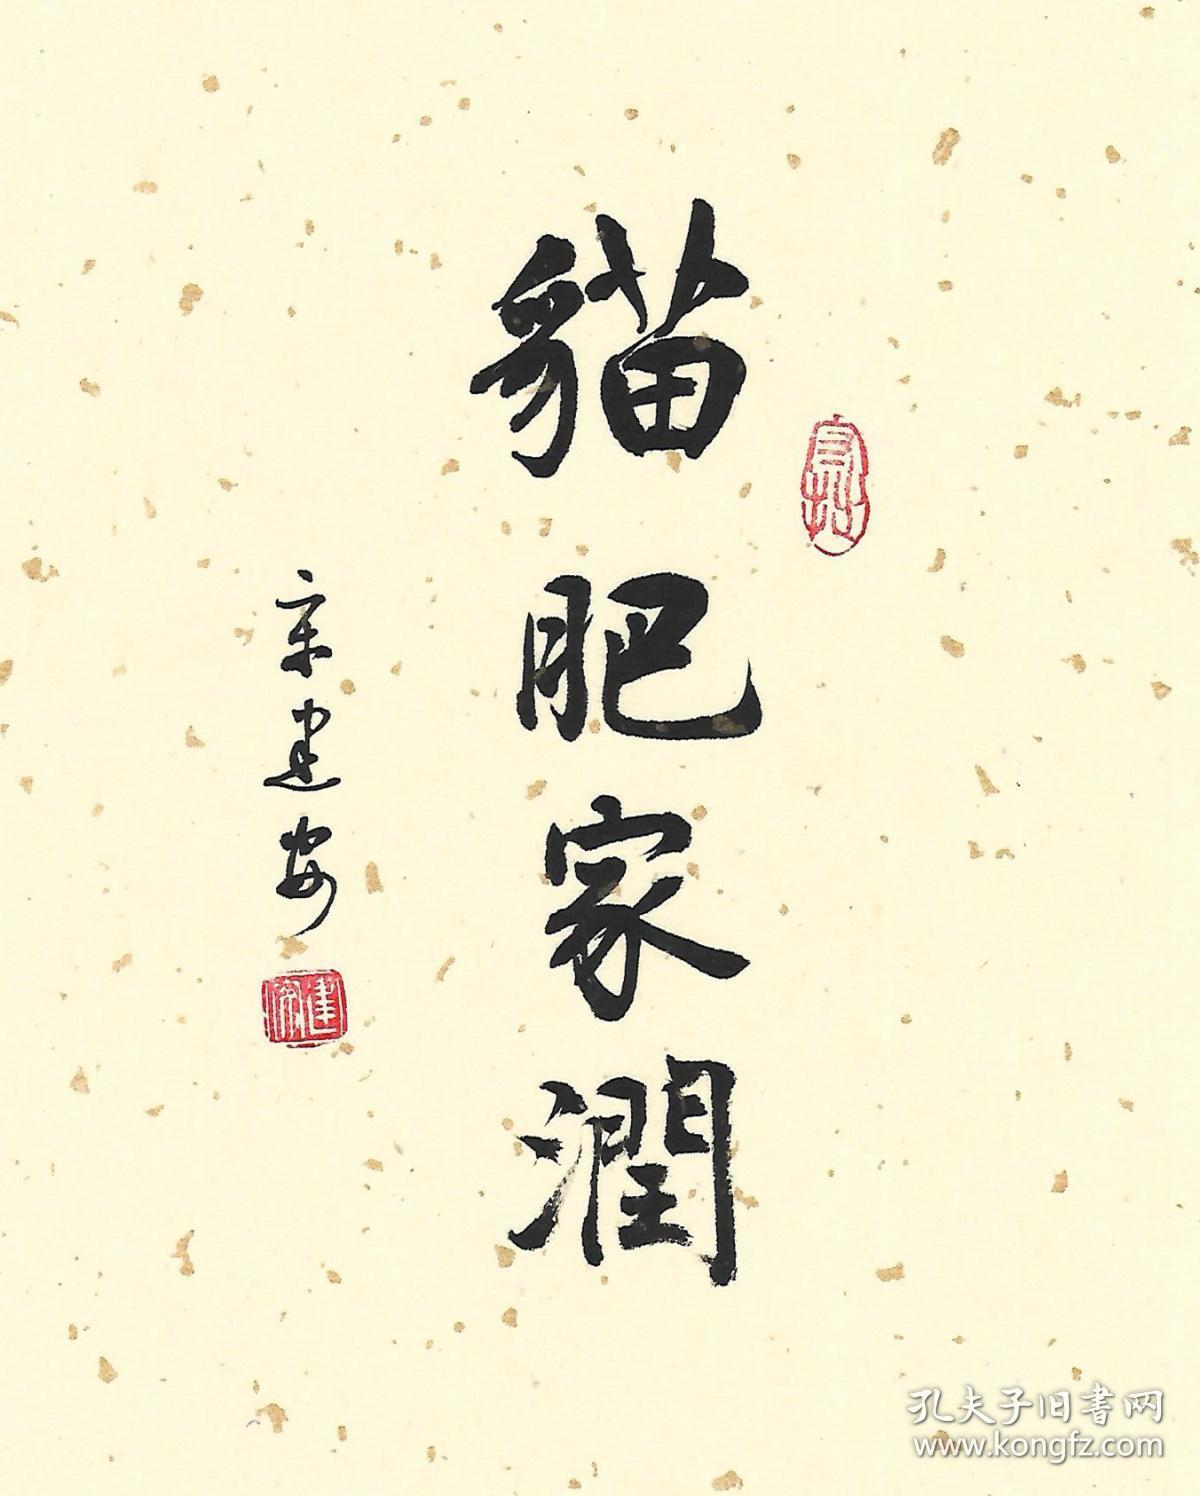 貓肥家潤
宋建安
建安
孔夫子旧書网
www.kongfz.com